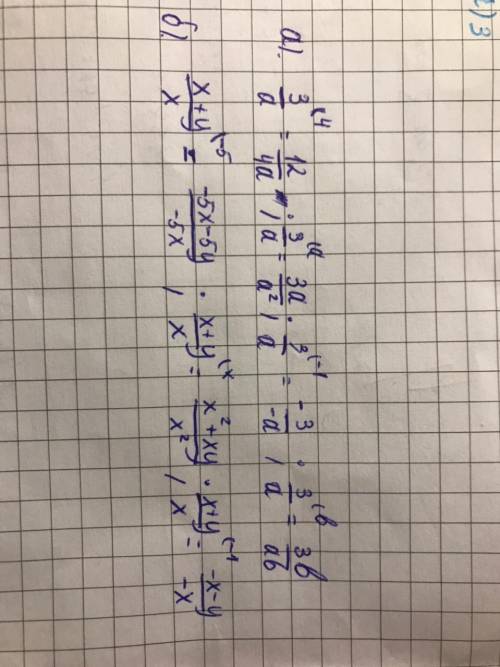 1) 3
а). 3/a (4 = 12/4a ; 3/a (a = 3a/a² ; 3/a (-1 = -3/-a ; 3/a (b = 3b/ab
б) x+y/x (-5 = -5x-5y/-5x ; x+y/x (x = x²+xy/x² ; x+y/x (-1 = -x-y/-x